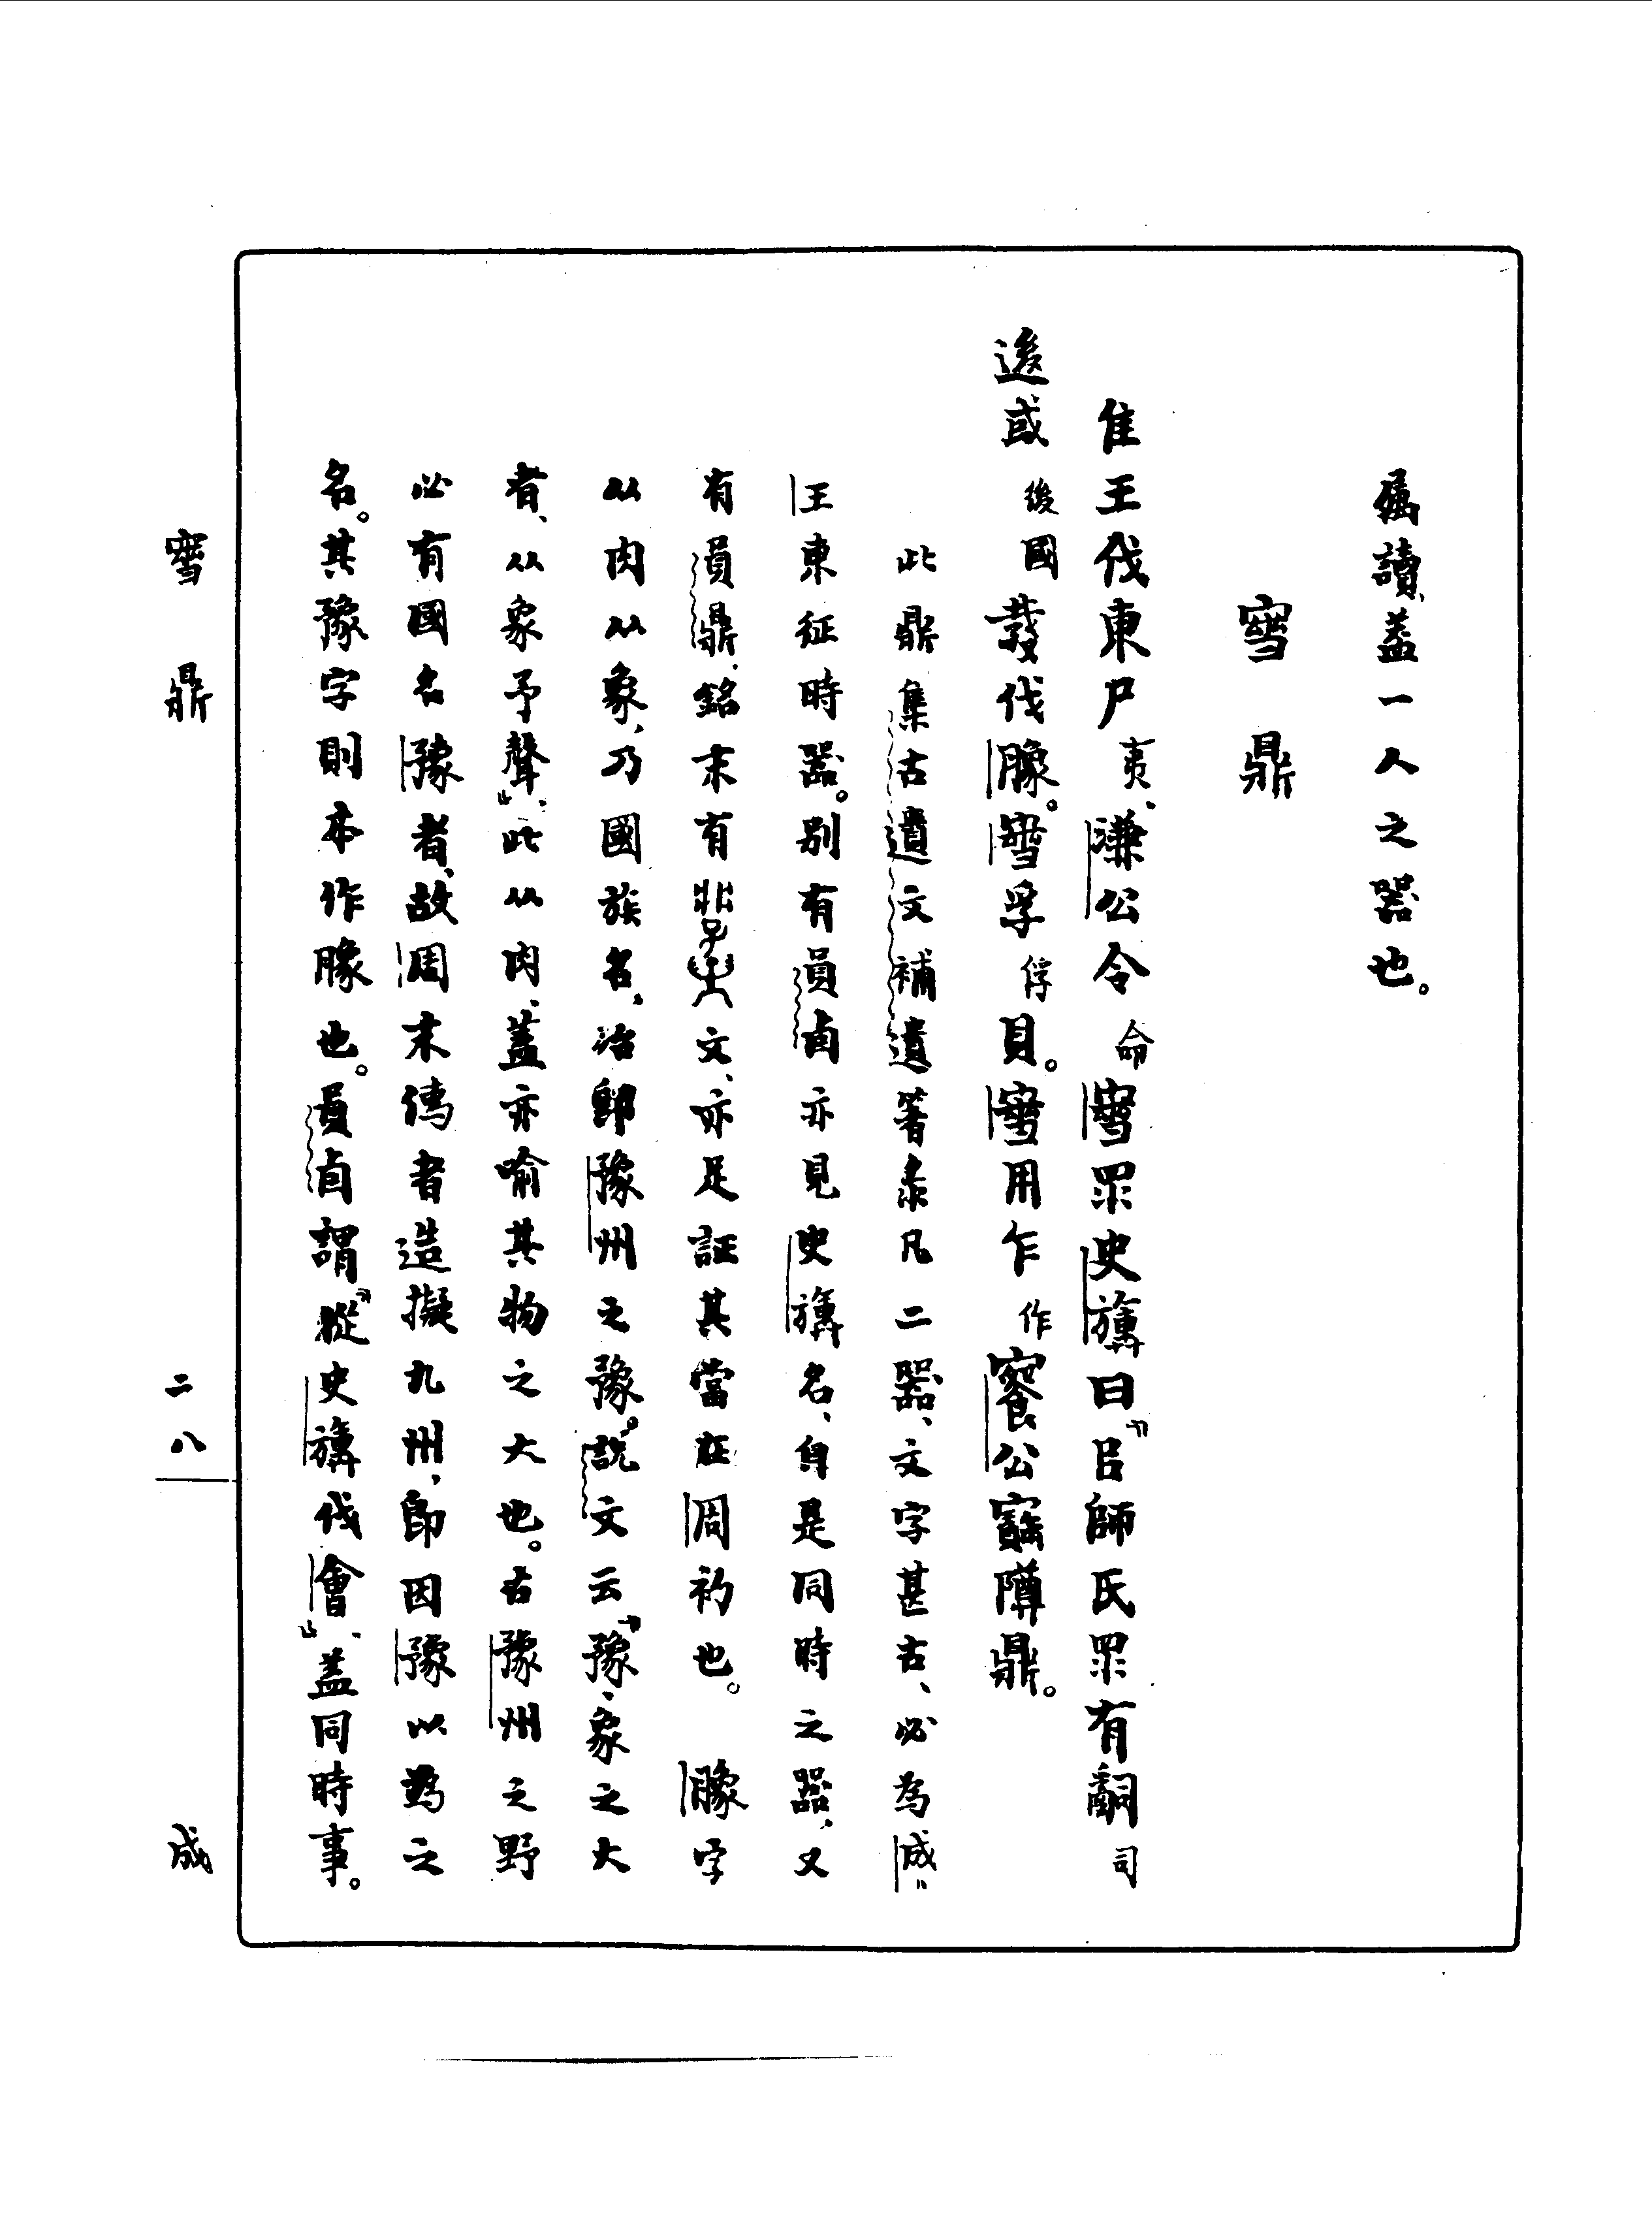 屬讀、蓋一人之器也。
窨鼎
隹王伐東尸夷、溓公令命窨眔史旟曰『㠯師氏眔有𤔲司
逡或後國𢦚伐䑏。窨孚俘貝。窨用乍作䬲公寶𨻰鼎。
此鼎集古遺文補遺箸彔凡二器、文字甚古、必為成
王東征時器。別有員卣亦見史旟名、自是同時之器、又
有員鼎、銘末有文、亦足証其當在周初也。䑏字
从肉从象、乃國族名、治卽豫州之豫。說文云『豫、象之大
者、从象予聲』、此从肉、蓋亦喻其物之大也。古豫州之野
必有國名豫者、故周末儔者造擬九州、卽因豫以為之
名。其豫字則本作䑏也。員卣謂『從史旟伐會』、蓋同時事。
窨鼎
二八
成